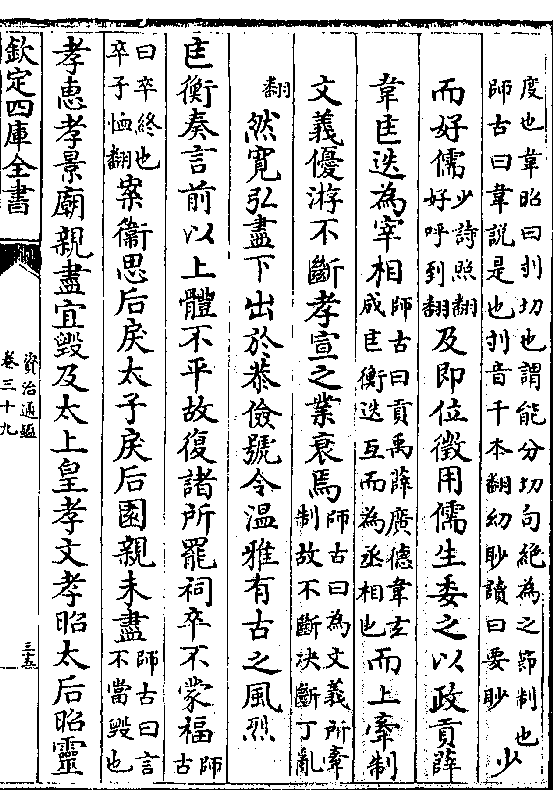 度也韋昭曰刌切也謂能分切句絶為之節制也
師古曰韋説是也刌音千本翻幼眇讀曰要眇
少
而好儒
少詩照翻
好呼到翻
及即位徵用儒生委之以政貢薛
韋匡迭為宰相
師古曰貢禹薛廣德韋玄
成匡衡迭互而為丞相也
而上牽制
文義優游不斷孝宣之業衰焉
師古曰為文義所牽
制故不斷決斷丁亂
翻
然寛弘盡下出於恭儉號令温雅有古之風烈
匡衡奏言前以上體不平故復諸所罷祠卒不蒙福
師
古
曰卒終也
卒子恤翻
案衞思后戾太子戾后園親未盡
師古曰言
不當毁也
孝惠孝景廟親盡宜毁及太上皇孝文孝昭太后昭靈
欽定四庫全書
資治通鑑
卷三十九
三五